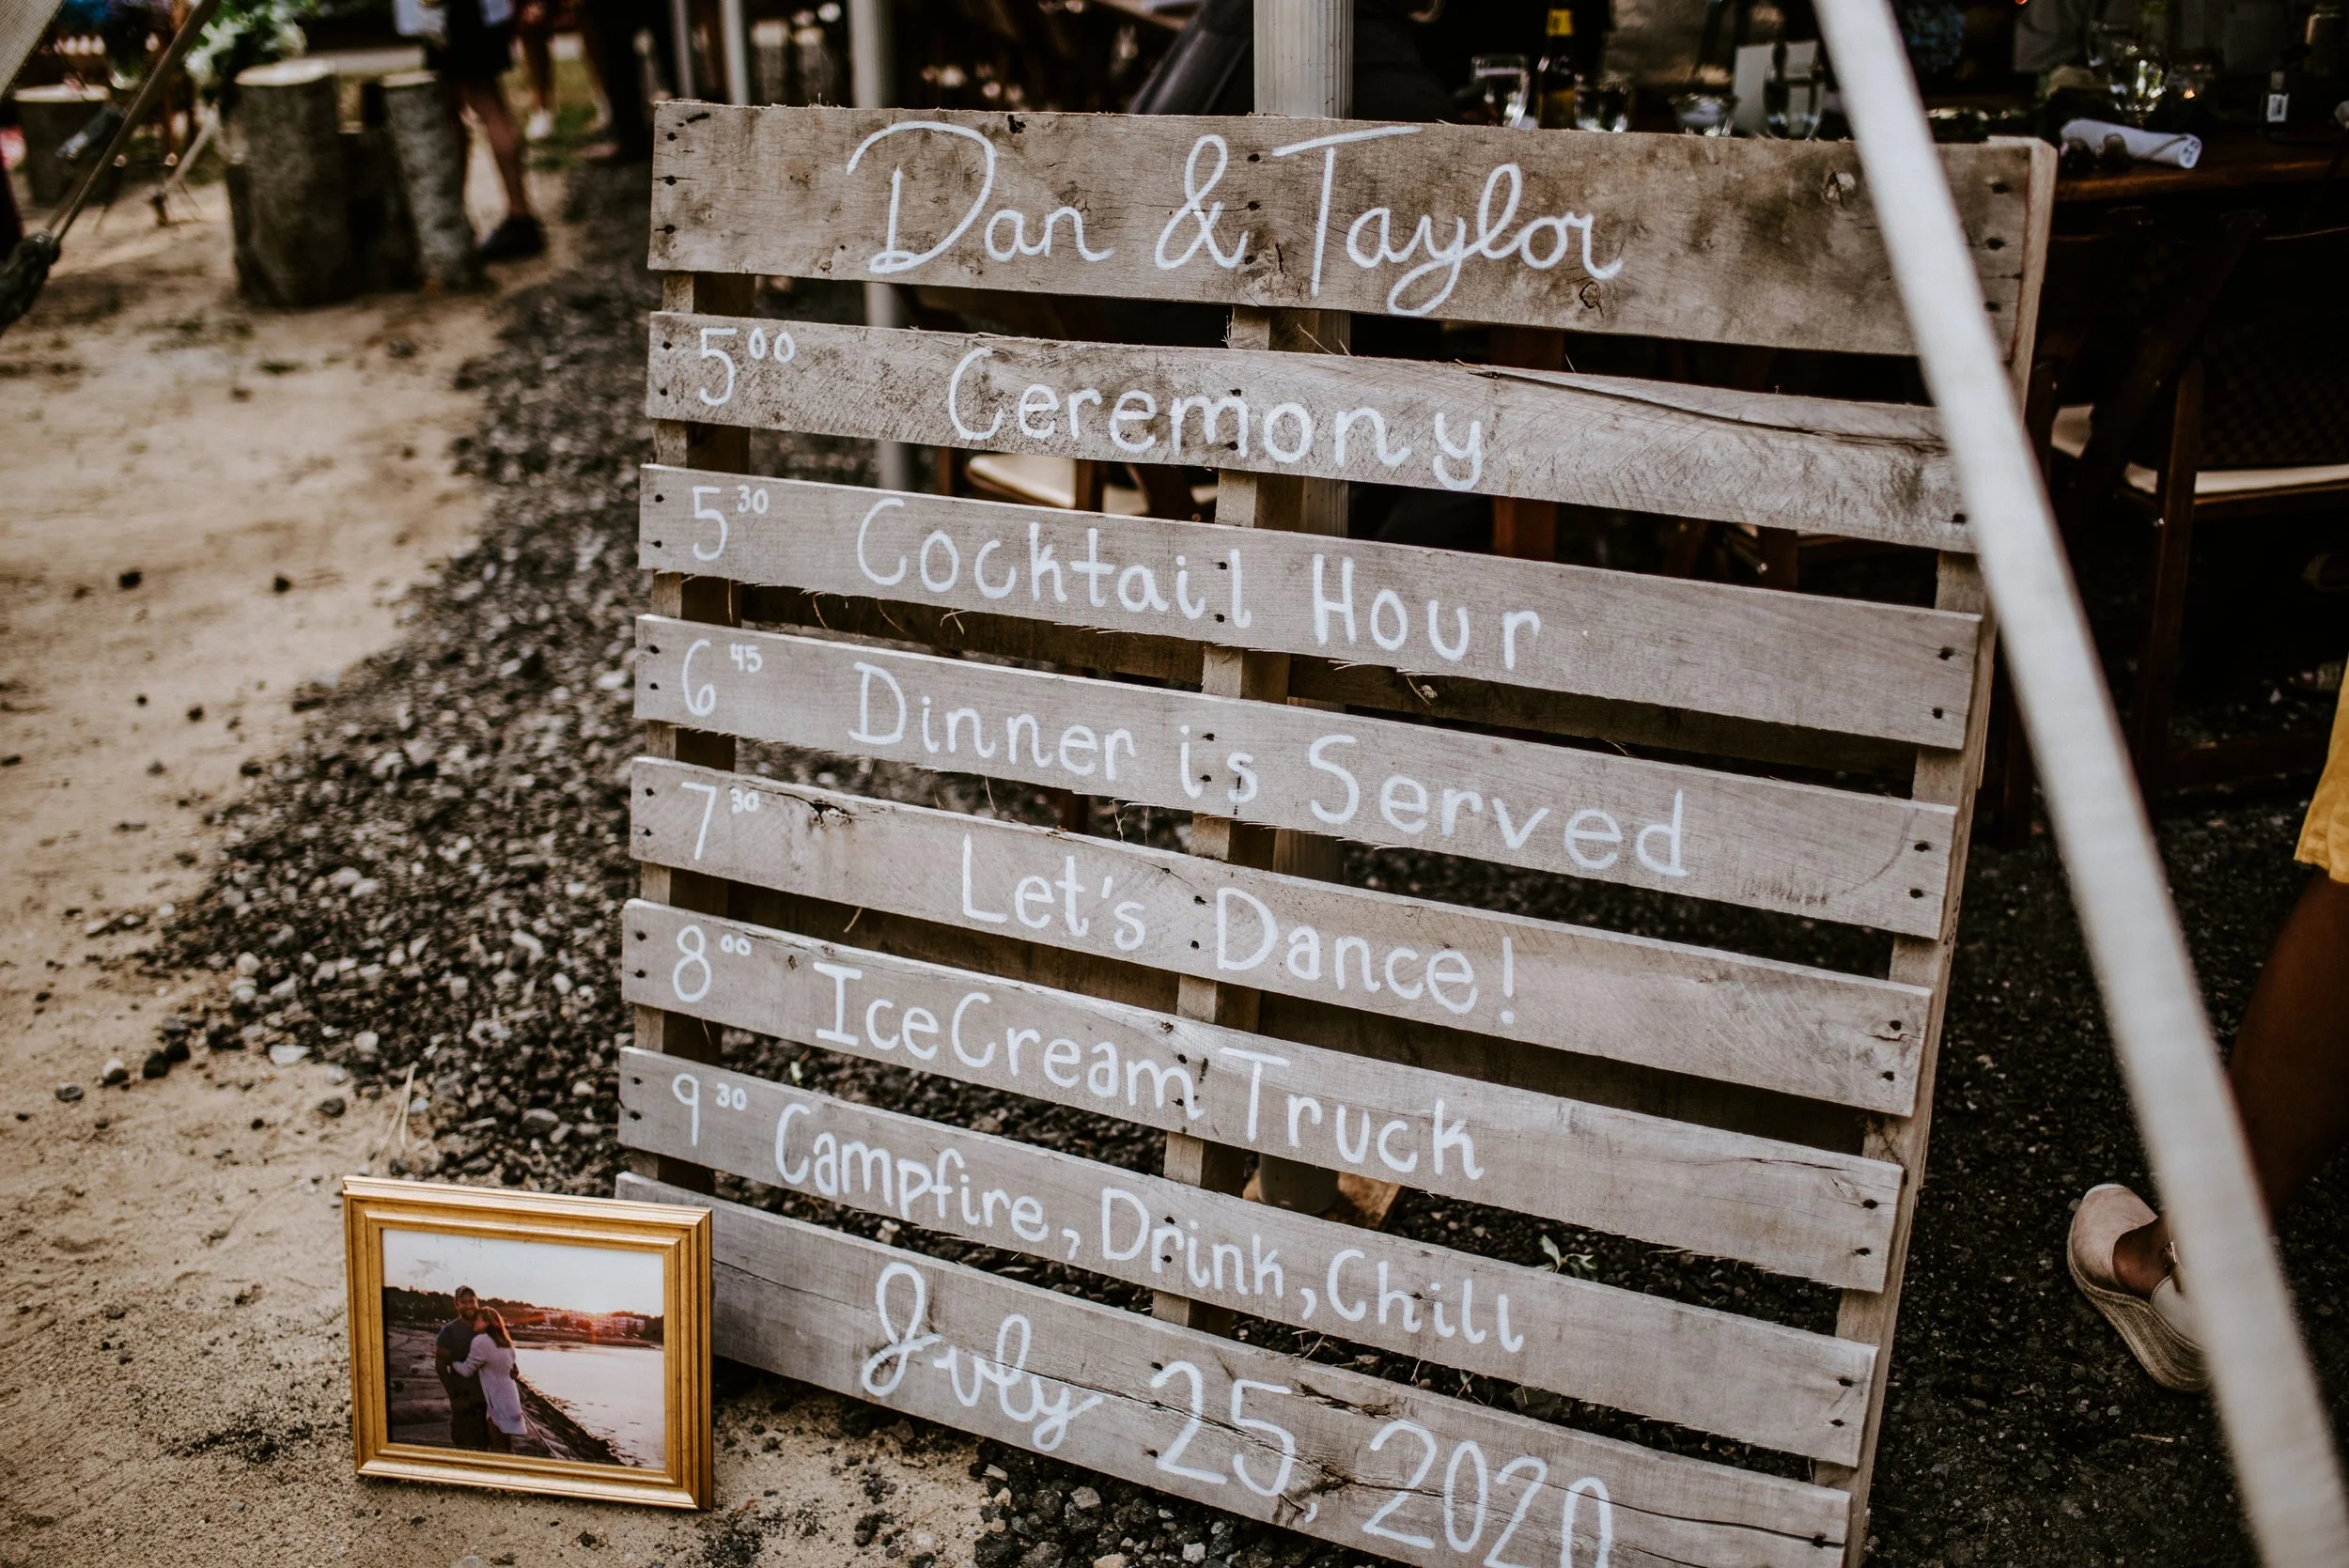 Dan & Taylor
5⁰⁰ Ceremony
5³⁰ Cocktail Hour
6⁴⁵ Dinner is Served
7³⁰ Let's Dance!
8⁰⁰ Ice Cream Truck
9³⁰ Campfire, Drink, Chill
July 25, 2020